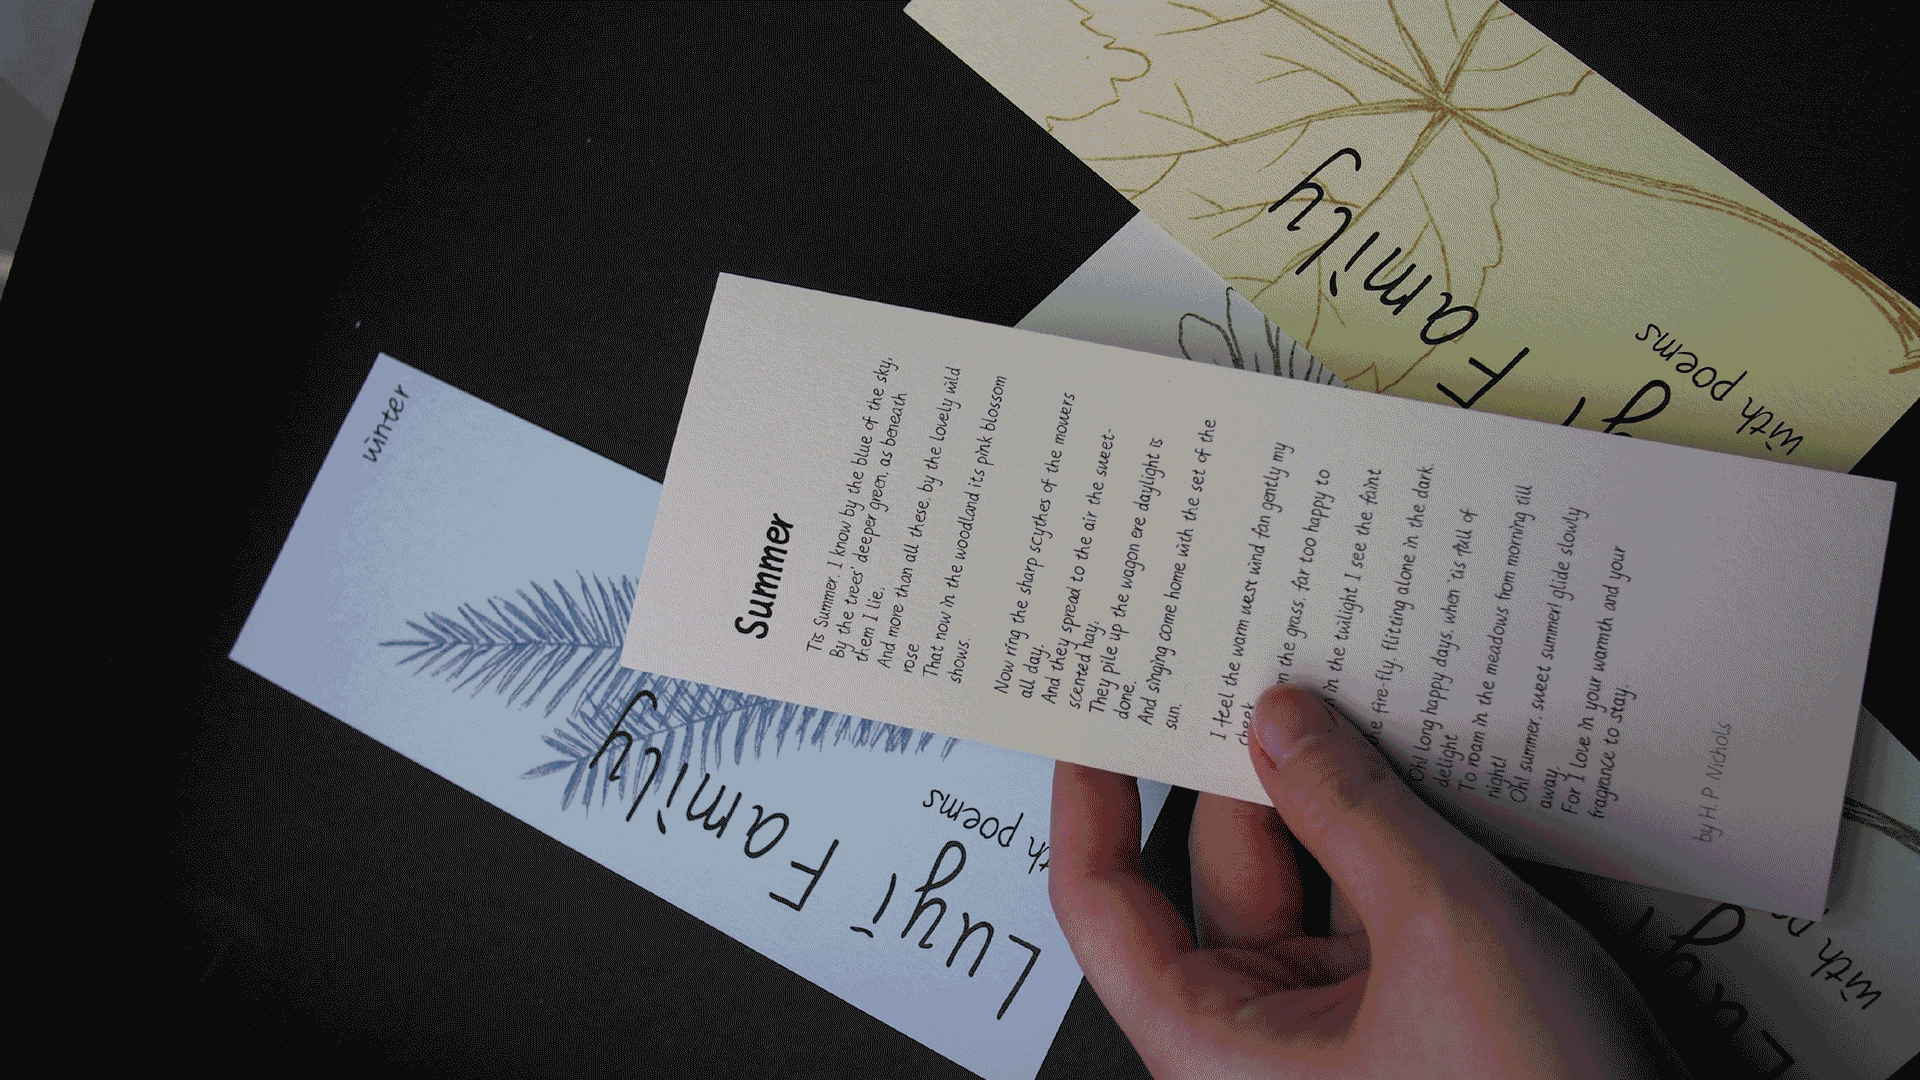 Summer
Tis Summer, I know by the blue of the sky,
By the trees' deeper green, as beneath
them I lie,
And more than all these, by the lovely wild
rose
That now in the woodland its pink blossom
shows.
Now ring the sharp scythes of the mowers
all day,
And they spread to the air the sweet-
scented hay,
They pile up the wagon ere daylight is
done,
And singing come home with the set of the
sun.
I feel the warm west wind fan gently my
cheek
on the grass, far too happy to
in the twilight I see the faint
the fire-fly, flitting alone in the dark.
Oh! long happy days, when 'tis full of
delight
To roam in the meadows from morning till
night!
Oh! summer, sweet summer! glide slowly
away,
For I love in your warmth and your
fragrance to stay.
by H. P. Nichols
winter
Luyi Family
th poems
Family
with poems
Luy
with